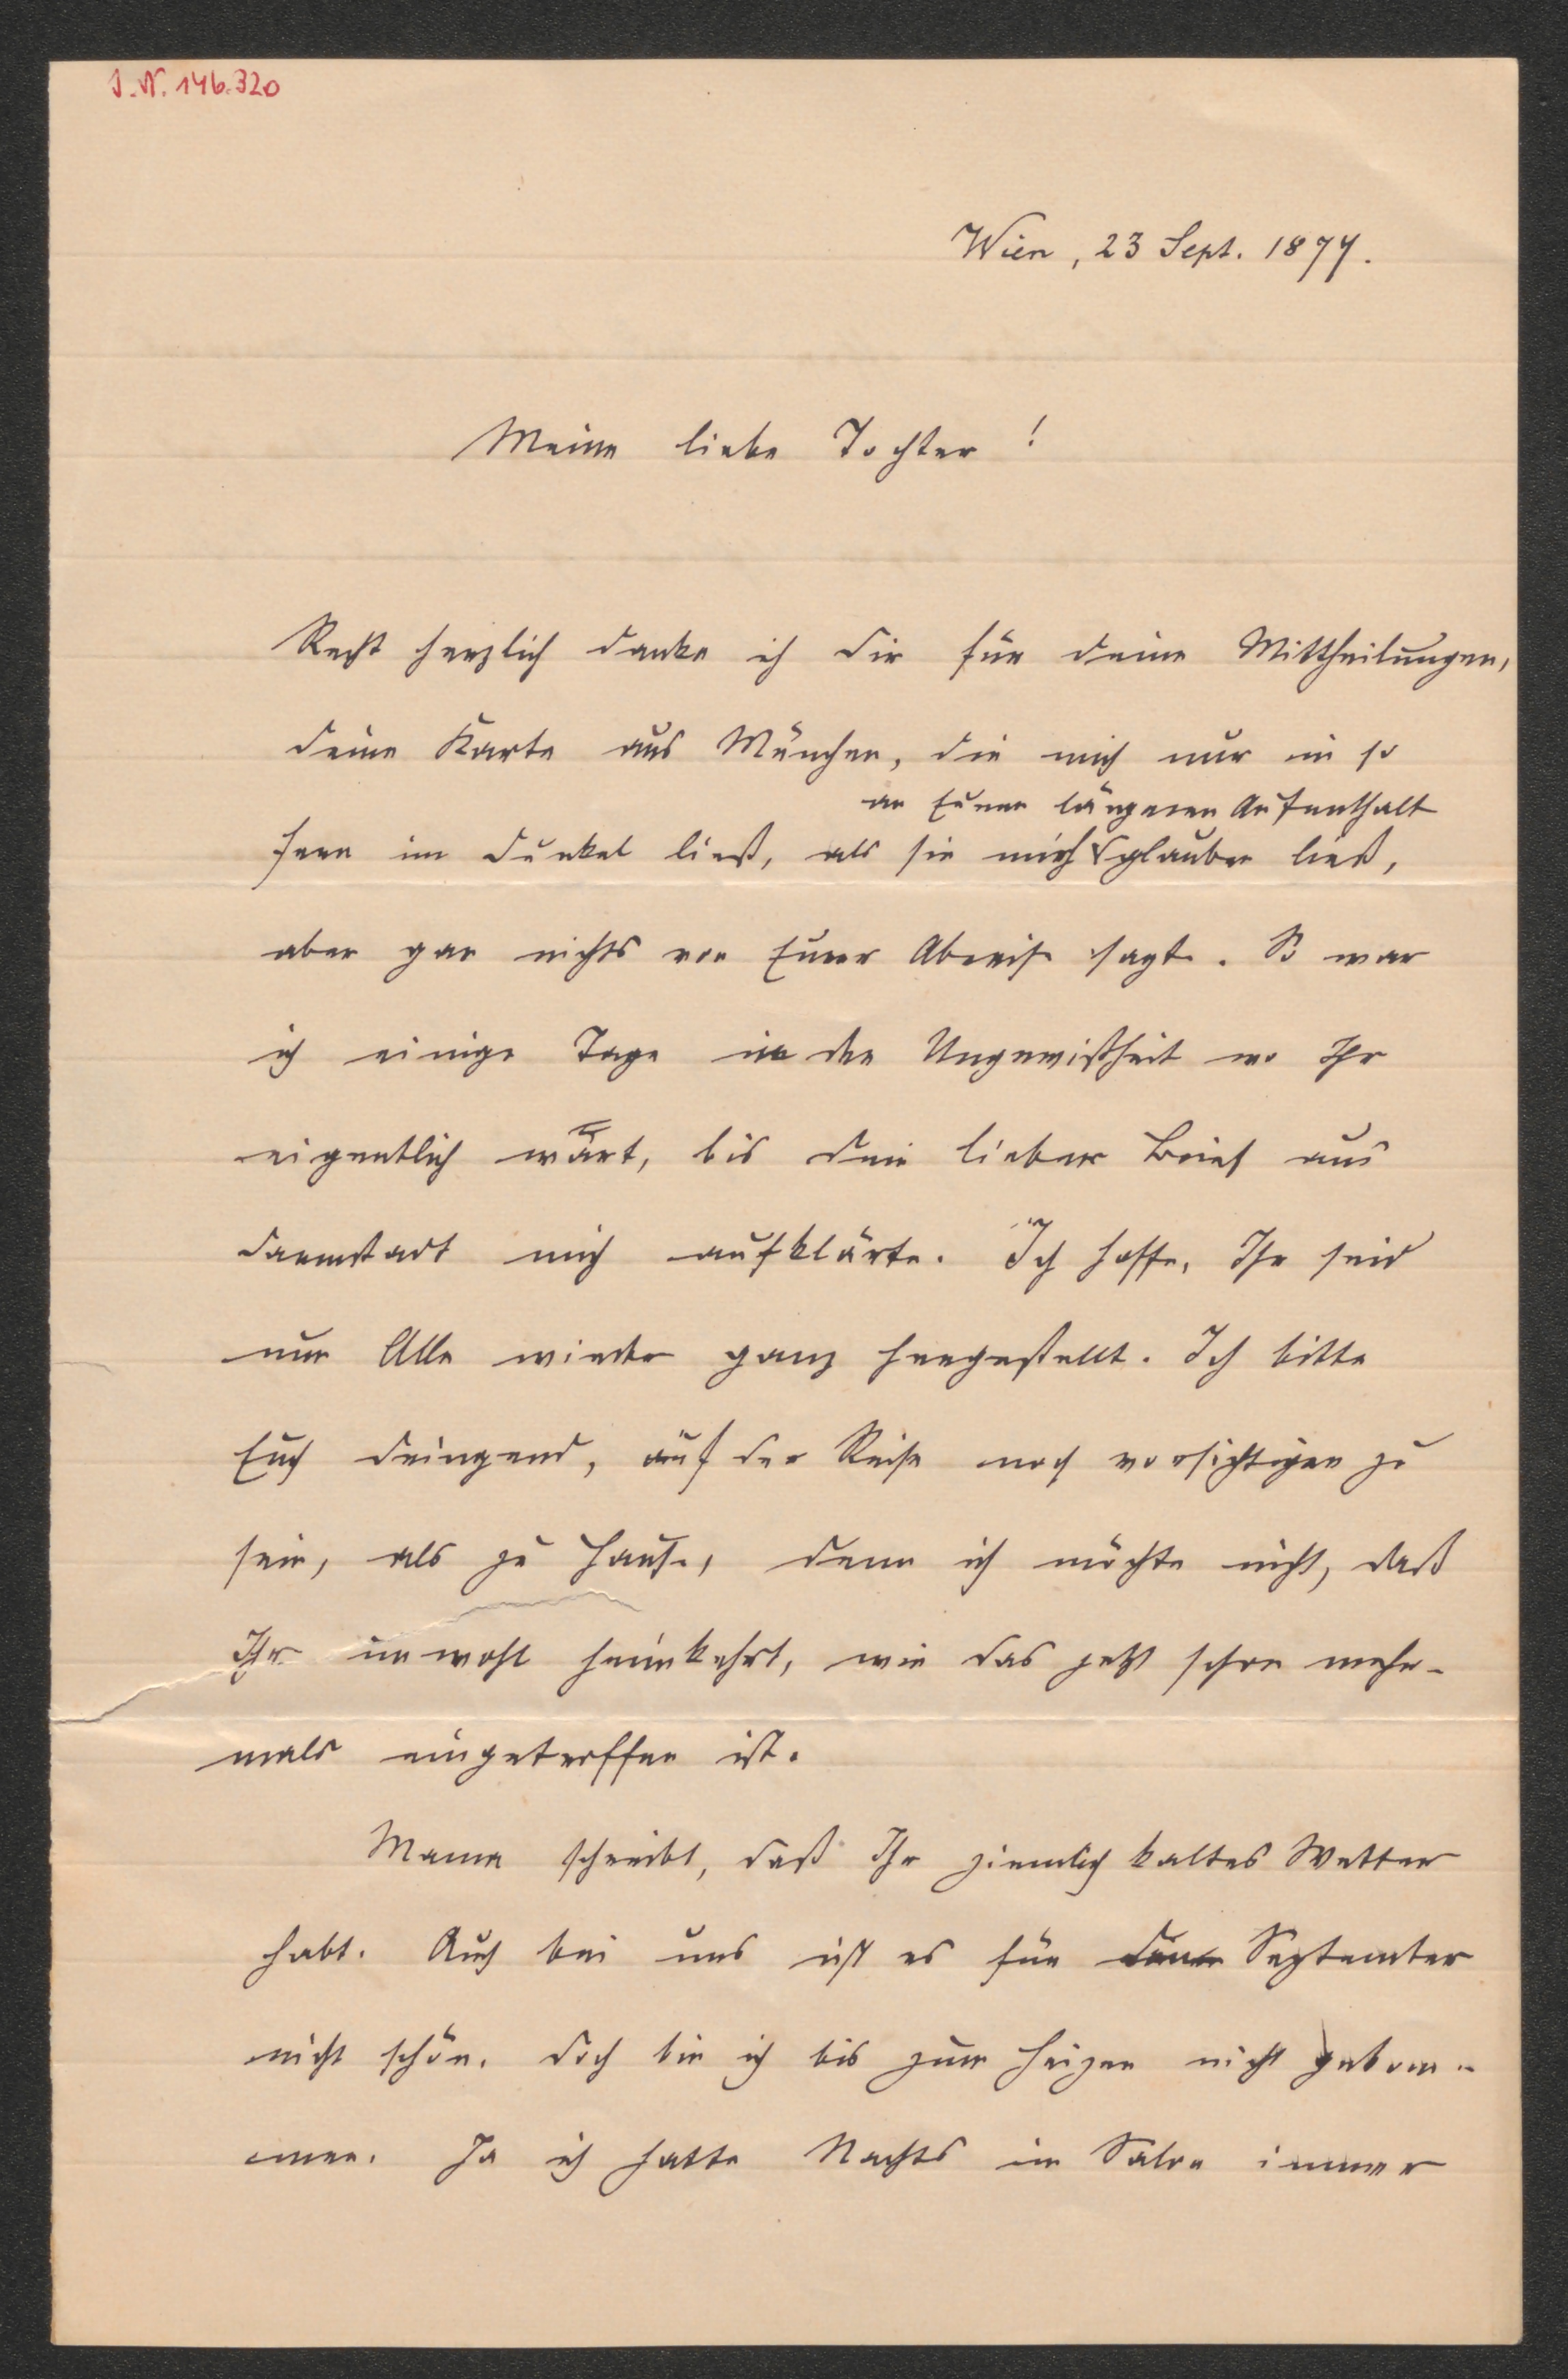 J.N. 146.320
Wien, 23 Sept. 1877.
Meine liebe Tochter!
Recht herzlich danke ich Dir für deine Mittheilungen,
deine Karte aus München, die mich nur in so
an Euren längeren Aufenthalt
fern im Dunkel ließ, als sie mich glauben ließ,
aber gar nichts von Eurer Abreise sagte. So war
ich einige Tage in der Ungewißheit wo Ihr
eigentlich wärt, bis dein lieber Brief aus
Darmstadt mich aufklärte. Ich hoffe, Ihr seid
nun Alle wieder ganz hergestellt. Ich bitte
Euch dringend, auf der Reise noch vorsichtiger zu
sein, als zu Hause, denn ich möchte nicht, daß
Ihr unwohl heimkehrt, wie das jetzt schon mehr-
mals eingetroffen ist.
Mama schreibt, daß Ihr ziemlich kaltes Wetter
habt. Auch bei uns ist es für September
nicht schön. Doch bin ich bis zum Heizen nicht gekom-
men. Ja ich hatte Nachts im Salon immer